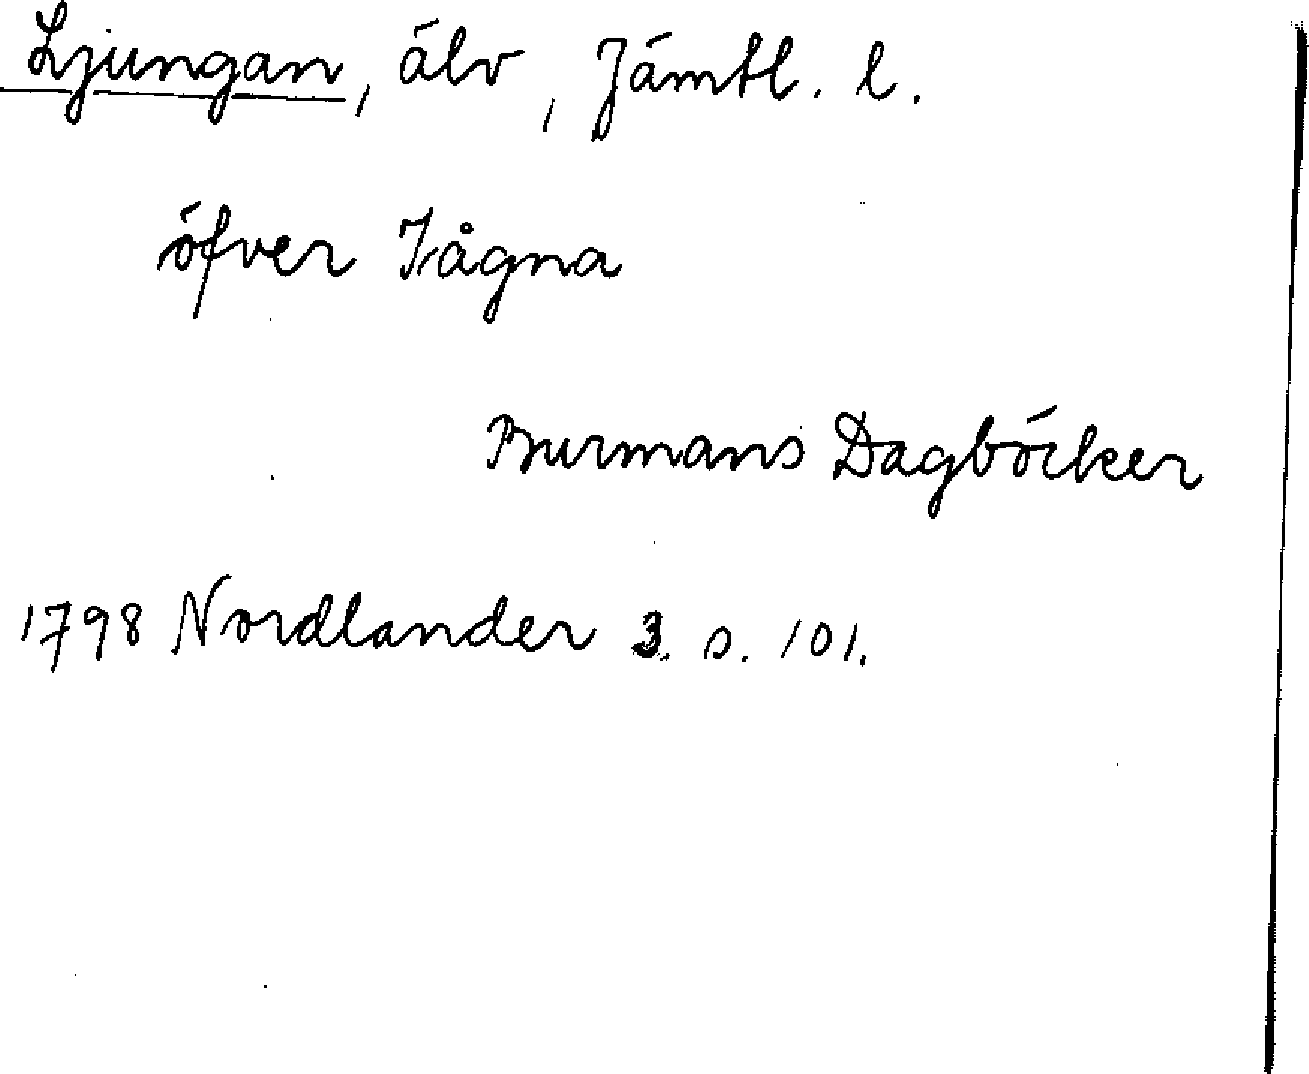 Ljungan, älv, Jämtl. l.
öfver Kågna
Burmans Dagböcker
1798 Nordlander 3. s. 101.